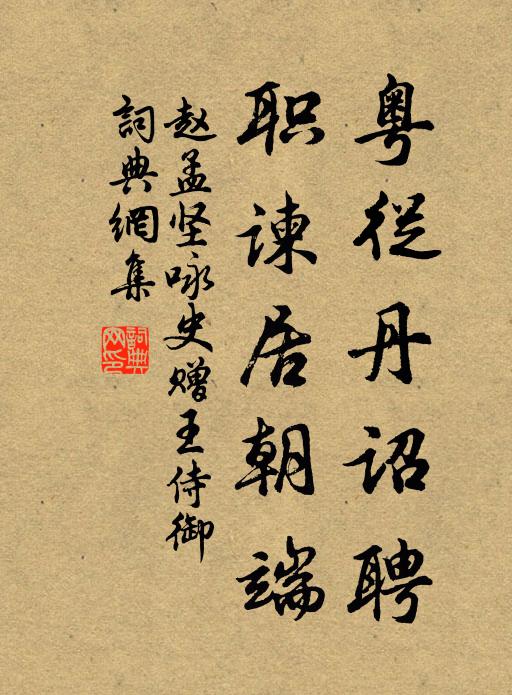 粤從丹诏聘
职谏居朝端
赵孟坚咏史赠王侍御
詞典網集
詞典
网印